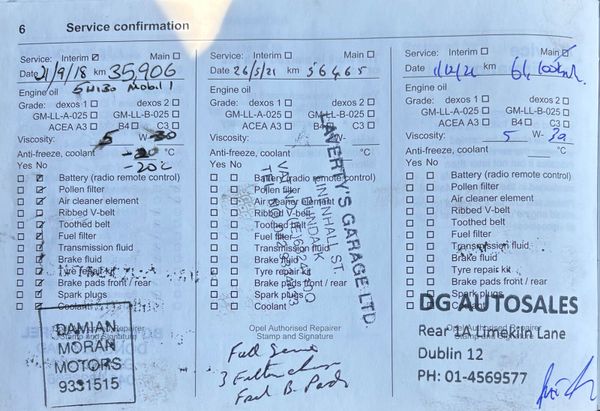 6 Service confirmation
Service: Interim ☑ Main ☐
Date 21/9/18 km 35,906
5W130 Mobil 1
Engine oil
Grade: dexos 1 ☐ dexos 2 ☐
GM-LL-A-025 ☐ GM-LL-B-025 ☐
ACEA A3 ☐ B4 ☐ C3 ☐
Viscosity: 5 W-30
Anti-freeze, coolant -20 °C
-20°C
Yes No
Battery (radio remote control)
Pollen filter
Air cleaner element
Ribbed V-belt
Toothed belt
Fuel filter
Transmission fluid
Brake fluid
Tyre repair kit
Brake pads front / rear
Spark plugs
Coolant
Opel Authorised Repairer
Stamp and Signature
DAMIAN
MORAN
MOTORS
9331515
Service: Interim ☐ Main ☐
Date 26/5/21 km 56465
Engine oil
Grade: dexos 1 ☐ dexos 2 ☐
GM-LL-A-025 ☐ GM-LL-B-025 ☐
ACEA A3 ☐ B4 ☐ C3 ☐
Viscosity: W-
Anti-freeze, coolant °C
Yes No
Battery (radio remote control)
Pollen filter
Air cleaner element
Ribbed V-belt
Toothed belt
Fuel filter
Transmission fluid
Brake fluid
Tyre repair kit
Brake pads front / rear
Spark plugs
Coolant
LAVERTY'S GARAGE LTD.
LINENHALL ST.
DUNDALK
Opel Authorised Repairer
Stamp and Signature
Full
3
B. Pads
Service: Interim ☐ Main ☑
Date km
Engine oil
Grade: dexos 1 ☐ dexos 2 ☐
GM-LL-A-025 ☐ GM-LL-B-025 ☐
ACEA A3 ☐ B4 ☐ C3 ☐
Viscosity: 5 W- 30
Anti-freeze, coolant °C
Yes No
Battery (radio remote control)
Pollen filter
Air cleaner element
Ribbed V-belt
Toothed belt
Fuel filter
Transmission fluid
Brake fluid
Tyre repair kit
Brake pads front / rear
Spark plugs
Coolant
DG AUTOSALES
Opel Authorised Repairer
Stamp and Signature
Rear Limekiln Lane
Dublin 12
PH: 01-4569577